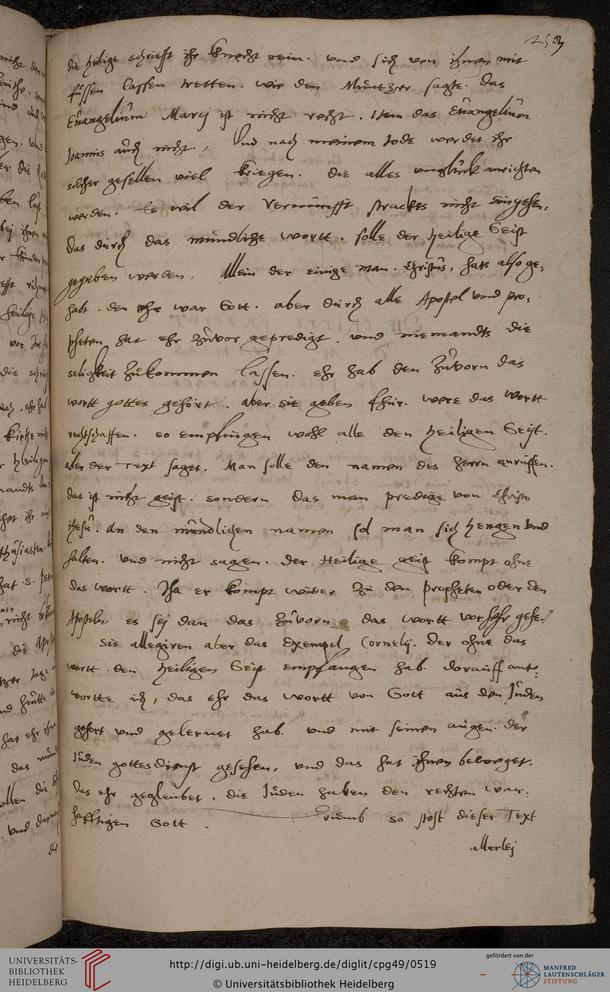 259
die heilige schrifft ihr knecht sein. und sich von ihnen mit
füssen lassen tretten. wie den Müntzer sagte. das
Euangelium Marcj ist nicht recht. Item das Euangelium
Joannis auch nicht., Und nach meinem tode werdet ihr
solcher gesellen viel kriegen. die alles unglück anrichten
werden. Es wil der Vernunfft stracks nicht eingehen,
das durch das mündliche wortt. solle der heilige Geist
gegeben werden. Allein der einige man. Christus, hats also ge:
habt. den ehr war Gott. aber durch alle Apostel und pro:
pheten hat ehr zuvor gepredigt. und niemandts die
seligkeit zukommen lassen. ehr hab den zuvorn das
wortt gottes gehört. aber sie geben fhur. were das wortt
rechtschaffen. so empfingen wohl alle den heiligen Geist.
aber der Text saget. Man solle den namen des herrn anruffen.
das ist nicht geist. sondern das man predige von Christo
ihesu. An den mündlichen namen sol man sich hengen und
halten. und nicht sagen. der Heilige geist kompt ohne
das wortt. Iha er kompt wider zu den propheten oder den
Aposteln. es sej dan das zuvorn das wortt vorhehr gehe.
Sie allegiren aber das Exempel Cornelij. der ohne das
wortt den heiligen Geist empfangen hab. dorauff ant:
wortte ich, das ehr das wortt von Gott aus den Juden
gehort und gelernet hab. und mit seinen augen der
Juden gottesdienst gesehen, und das hat ihnen beweget.
das ehr gegleubet. die Juden haben den rechten war:
hafftigen Gott. so stost dieser Text
allerlej
UNIVERSITÄTS-
BIBLIOTHEK
HEIDELBERG
http://digi.ub.uni-heidelberg.de/diglit/cpg49/0519
© Universitätsbibliothek Heidelberg
gefördert von der
MANFRED
LAUTENSCHLÄGER
STIFTUNG